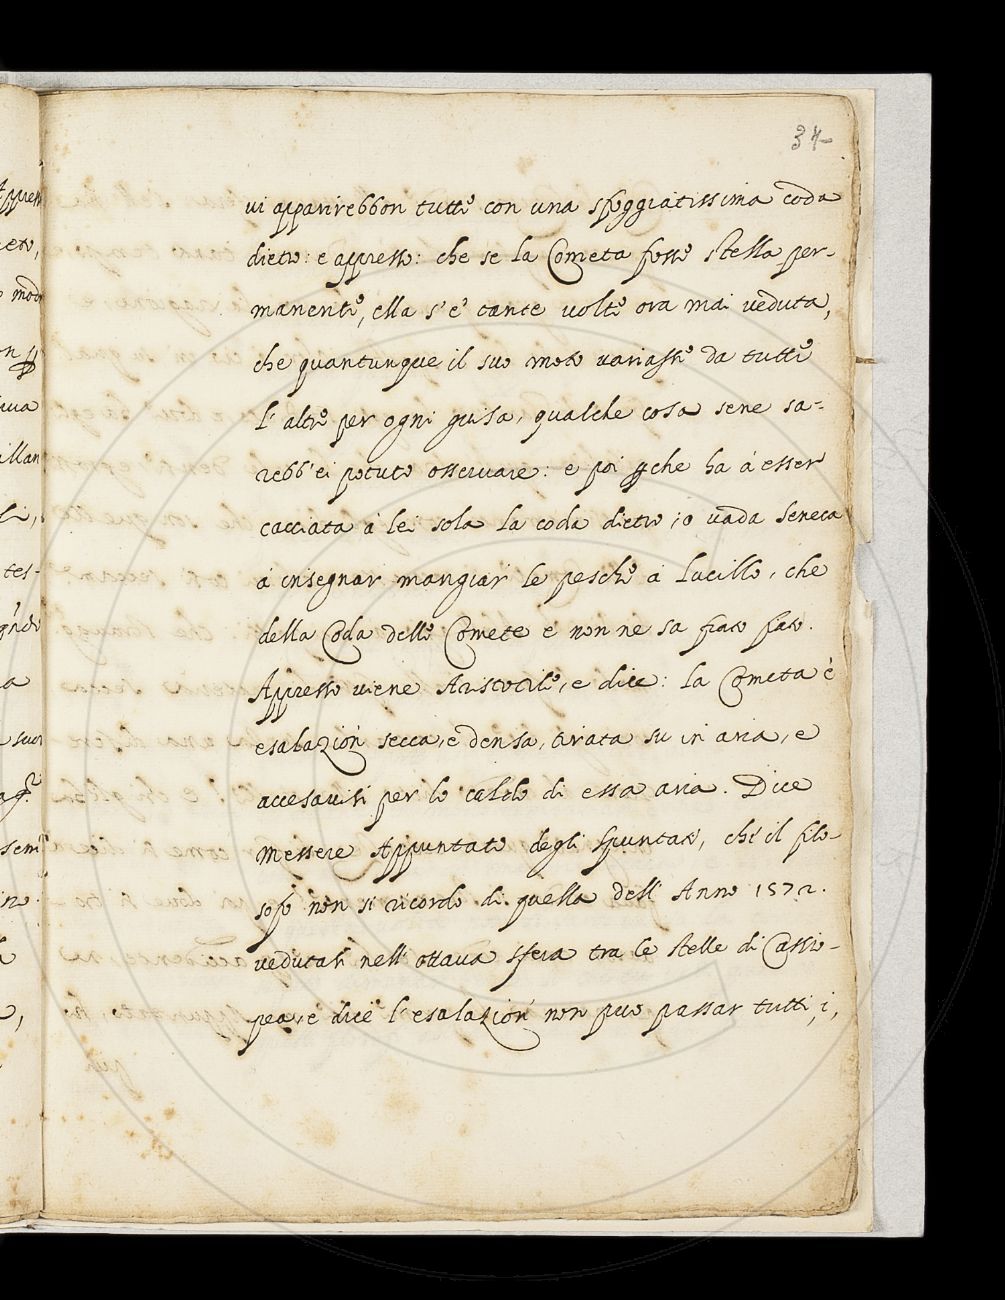 34
vi apparirebbon tutte con una sfoggiatissima coda
dietro: e appresso: che se la Cometa fosse stella per-
manente, ella s'è tante volte ora mai veduta,
che quantunque il suo moto variasse da tutte
l'altre per ogni guisa, qualche cosa sene sa-
rebb'ei potuto osservare: e poi che ha à esser
cacciata à lei sola la coda dietro; o vada Seneca
à insegnar mangiar le pesche à Lucillo, che
della Coda delle Comete e non ne sa fiato fiato.
Appresso viene Aristotile, e dice: la Cometa è
esalazion secca, e densa, tirata su in aria, e
accesavisi per lo caldo di essa aria. Dice
Messere Appuntato degli Spuntati, ch'il filo-
sofo non si ricordo di quella dell'Anno 1572.
vedutasi nell'ottava sfera tra le stelle di Cassio-
pea, e dice l'esalazion non puo passar tutti, i,